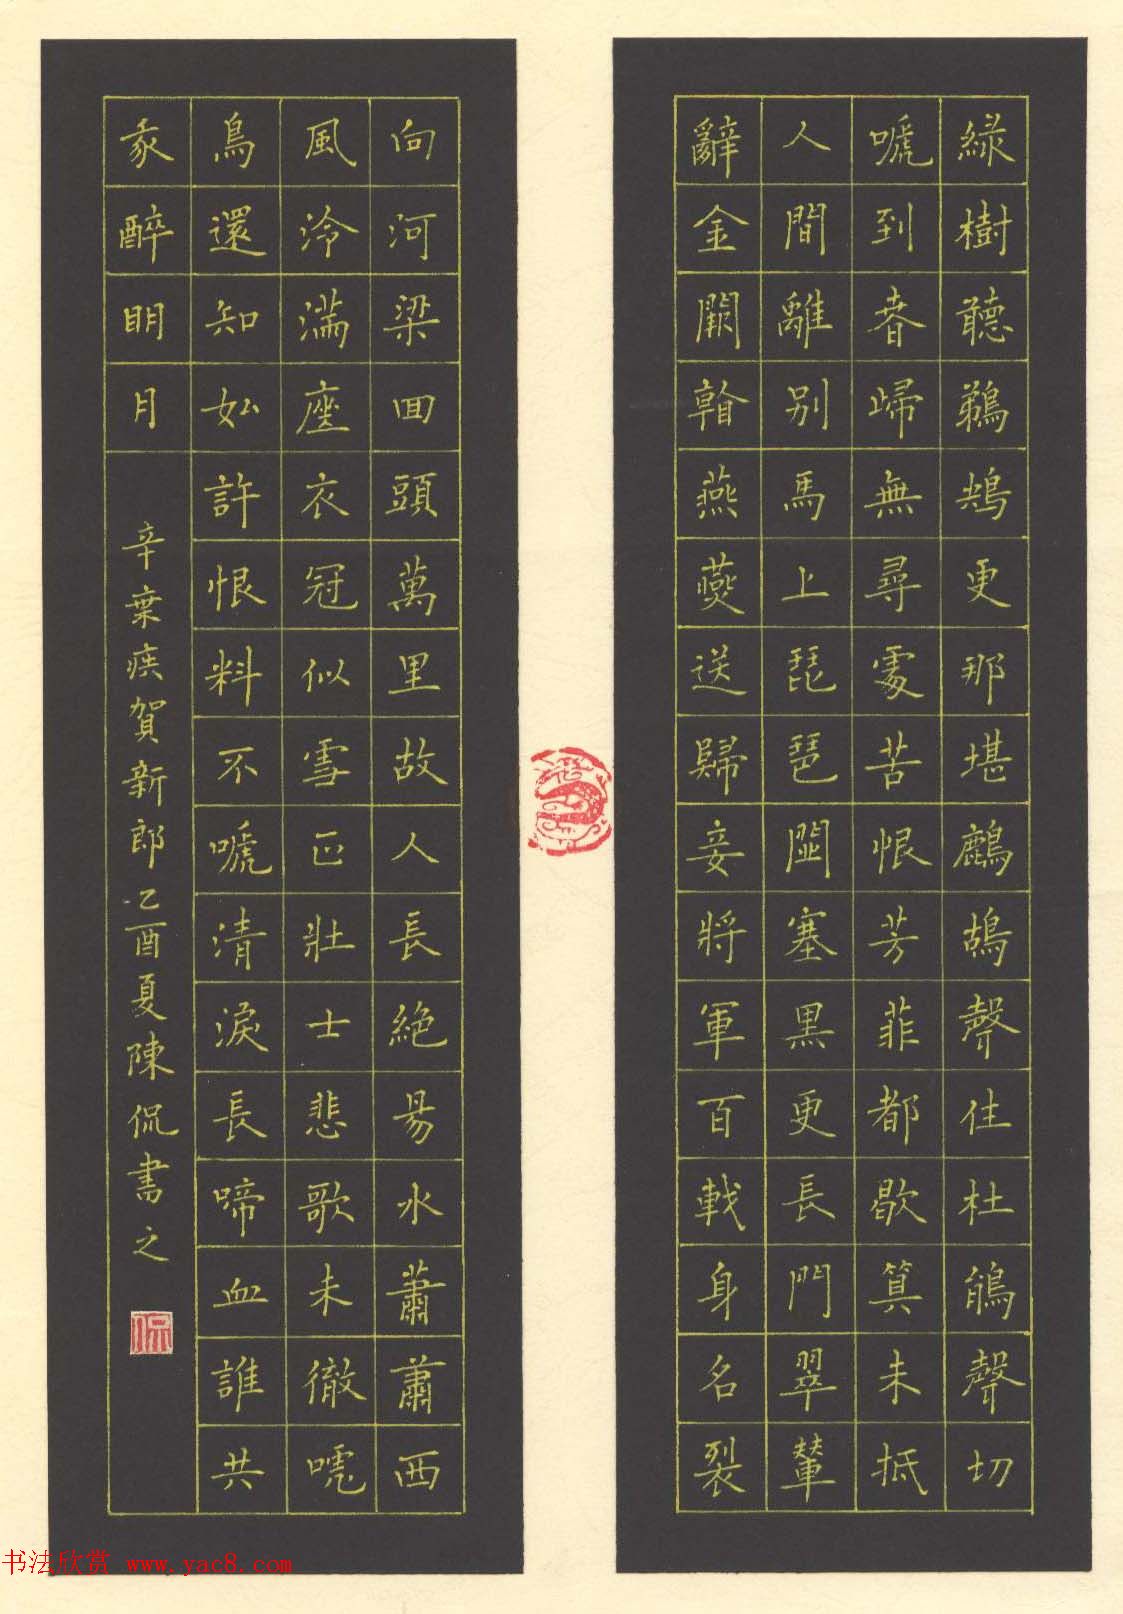 綠樹聽鵜鴂更那堪鷓鴣聲住杜鵑聲切
嗁到春歸無尋處苦恨芳菲都歇算未抵
人間離別馬上琵琶關塞黑更長門翠輦
辭金闕看燕燕送歸妾將軍百戰身名裂
向河梁回頭萬里故人長絕易水蕭蕭西
風冷滿座衣冠似雪正壯士悲歌未徹嗁
鳥還知如許恨料不嗁清淚長啼血誰共
我醉明月
辛棄疾賀新郎乙酉夏陳侃書之
侃
书法欣赏 www.yac8.com